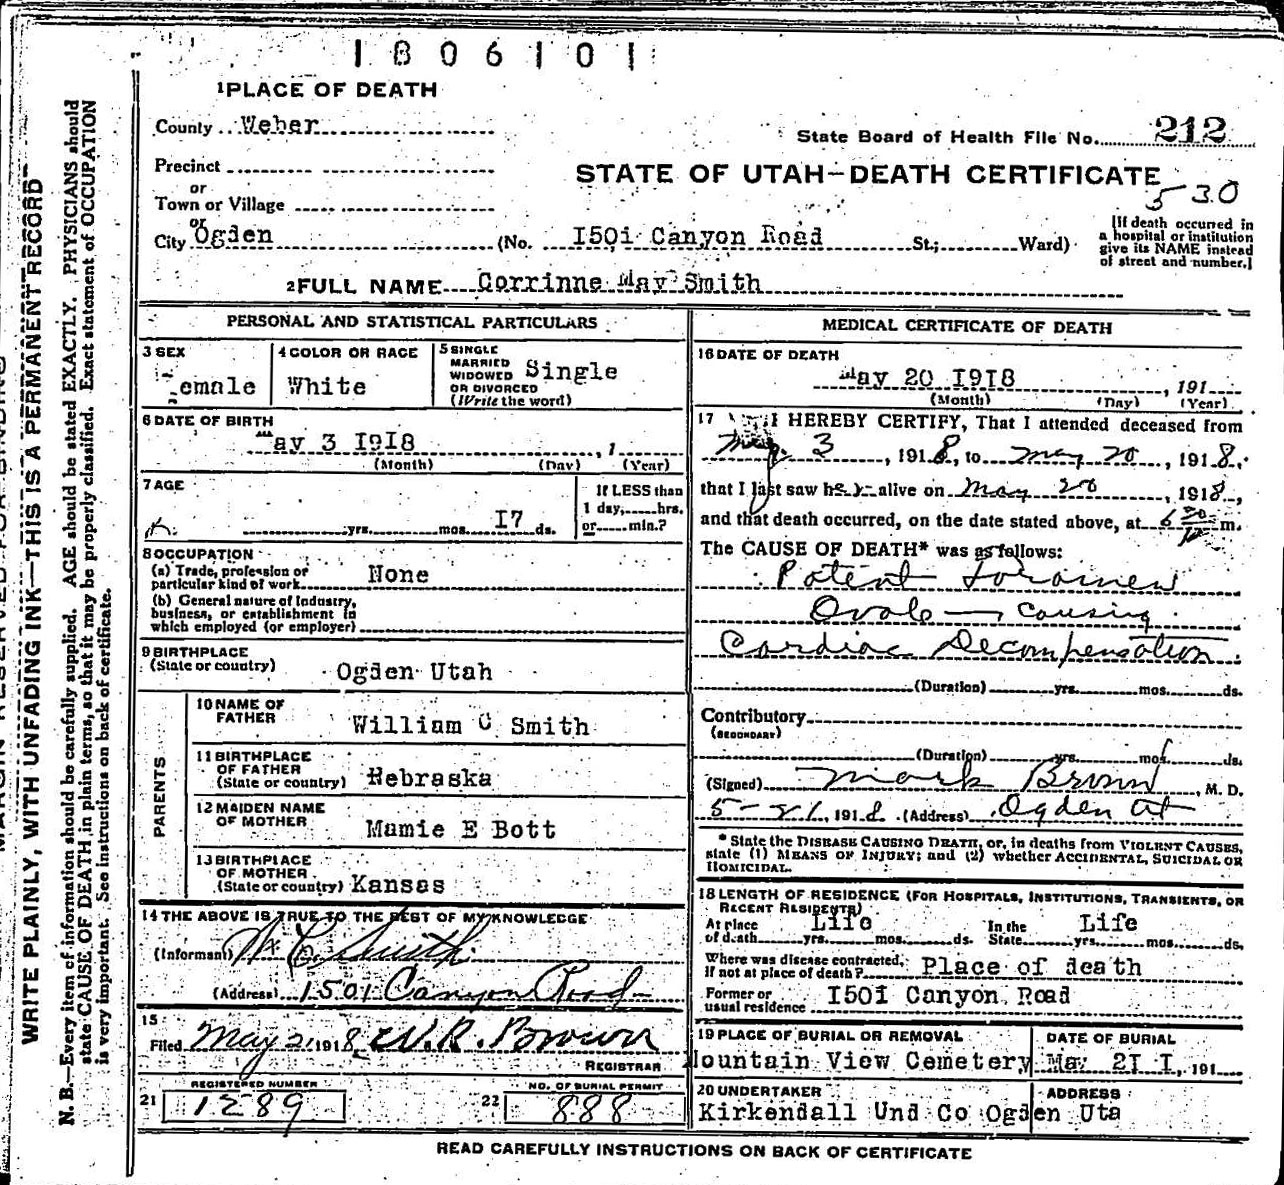 1806101
1 PLACE OF DEATH
County Weber
State Board of Health File No. 212
Precinct
STATE OF UTAH—DEATH CERTIFICATE
530
or
Town or Village
or
City Ogden (No. I50i Canyon Road St.; Ward)
[If death occurred in
a hospital or institution
give its NAME instead
of street and number.]
2 FULL NAME Corrinne May Smith
PERSONAL AND STATISTICAL PARTICULARS
3 SEX
emale
4 COLOR OR RACE
White
5 SINGLE
MARRIED
WIDOWED
OR DIVORCED
(Write the word)
Single
6 DATE OF BIRTH
May 3 I9I8 , 1
(Month) (Day) (Year)
7 AGE
yrs. mos. I7 ds.
If LESS than
1 day, hrs.
or min.?
8 OCCUPATION
(a) Trade, profession or
particular kind of work None
(b) General nature of Industry,
business, or establishment in
which employed (or employer)
9 BIRTHPLACE
(State or country) Ogden Utah
PARENTS
10 NAME OF
FATHER William C Smith
11 BIRTHPLACE
OF FATHER
(State or country) Nebraska
12 MAIDEN NAME
OF MOTHER Mamie E Bott
13 BIRTHPLACE
OF MOTHER
(State or country) Kansas
14 THE ABOVE IS TRUE TO THE BEST OF MY KNOWLEDGE
(Informant) Wm C Smith
(Address) 1501 Canyon Road
15
Filed May 21 1918 W. R. Brown
REGISTRAR
21 REGISTERED NUMBER
1289
22 NO. OF BURIAL PERMIT
888
MEDICAL CERTIFICATE OF DEATH
16 DATE OF DEATH
May 20 I9I8 , 191
(Month) (Day) (Year)
17 I HEREBY CERTIFY, That I attended deceased from
May 3 , 1918, to May 20 , 1918,
that I last saw her alive on May 20 , 1918,
and that death occurred, on the date stated above, at 6 m.
The CAUSE OF DEATH* was as follows:
Patent Foramen
Ovale — causing
Cardiac Decompensation
(Duration) yrs. mos. ds.
Contributory
(SECONDARY)
(Duration) yrs. mos. ds.
(Signed) Mark Brown , M. D.
5-21, 1918. (Address) Ogden Ut
* State the DISEASE CAUSING DEATH, or, in deaths from VIOLENT CAUSES,
state (1) MEANS OF INJURY; and (2) whether ACCIDENTAL, SUICIDAL OR
HOMICIDAL.
18 LENGTH OF RESIDENCE (FOR HOSPITALS, INSTITUTIONS, TRANSIENTS, OR
RECENT RESIDENTS)
At place Life In the Life
of death yrs. mos. ds. State yrs. mos. ds.
Where was disease contracted,
if not at place of death? Place of death
Former or
usual residence I50i Canyon Road
19 PLACE OF BURIAL OR REMOVAL
Mountain View Cemetery
DATE OF BURIAL
May 2I I, 191
20 UNDERTAKER
Kirkendall Und Co Ogden Uta
ADDRESS
READ CAREFULLY INSTRUCTIONS ON BACK OF CERTIFICATE
WRITE PLAINLY, WITH UNFADING INK—THIS IS A PERMANENT RECORD
N. B.—Every item of information should be carefully supplied. AGE should be stated EXACTLY. PHYSICIANS should
state CAUSE OF DEATH in plain terms, so that it may be properly classified. Exact statement of OCCUPATION
is very important. See instructions on back of certificate.